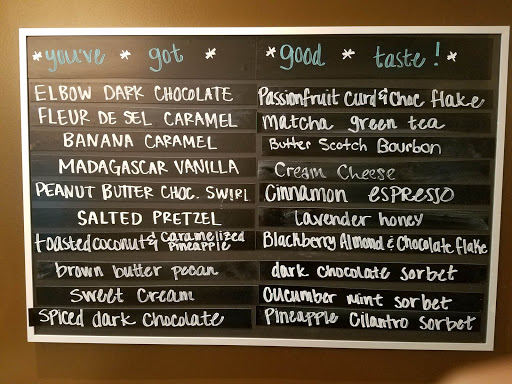 *you've * got * *good * taste! *
ELBOW DARK CHOCOLATE
FLEUR DE SEL CARAMEL
BANANA CARAMEL
MADAGASCAR VANILLA
PEANUT BUTTER CHOC. SWIRL
SALTED PRETZEL
toasted coconut & caramelized pineapple
brown butter pecan
sweet cream
Spiced dark chocolate
Passionfruit Curd & Choc flake
matcha green tea
Butter Scotch Bourbon
Cream Cheese
Cinnamon espresso
Lavender honey
Blackberry Almond & Chocolate flake
dark chocolate sorbet
Cucumber mint sorbet
Pineapple Cilantro sorbet